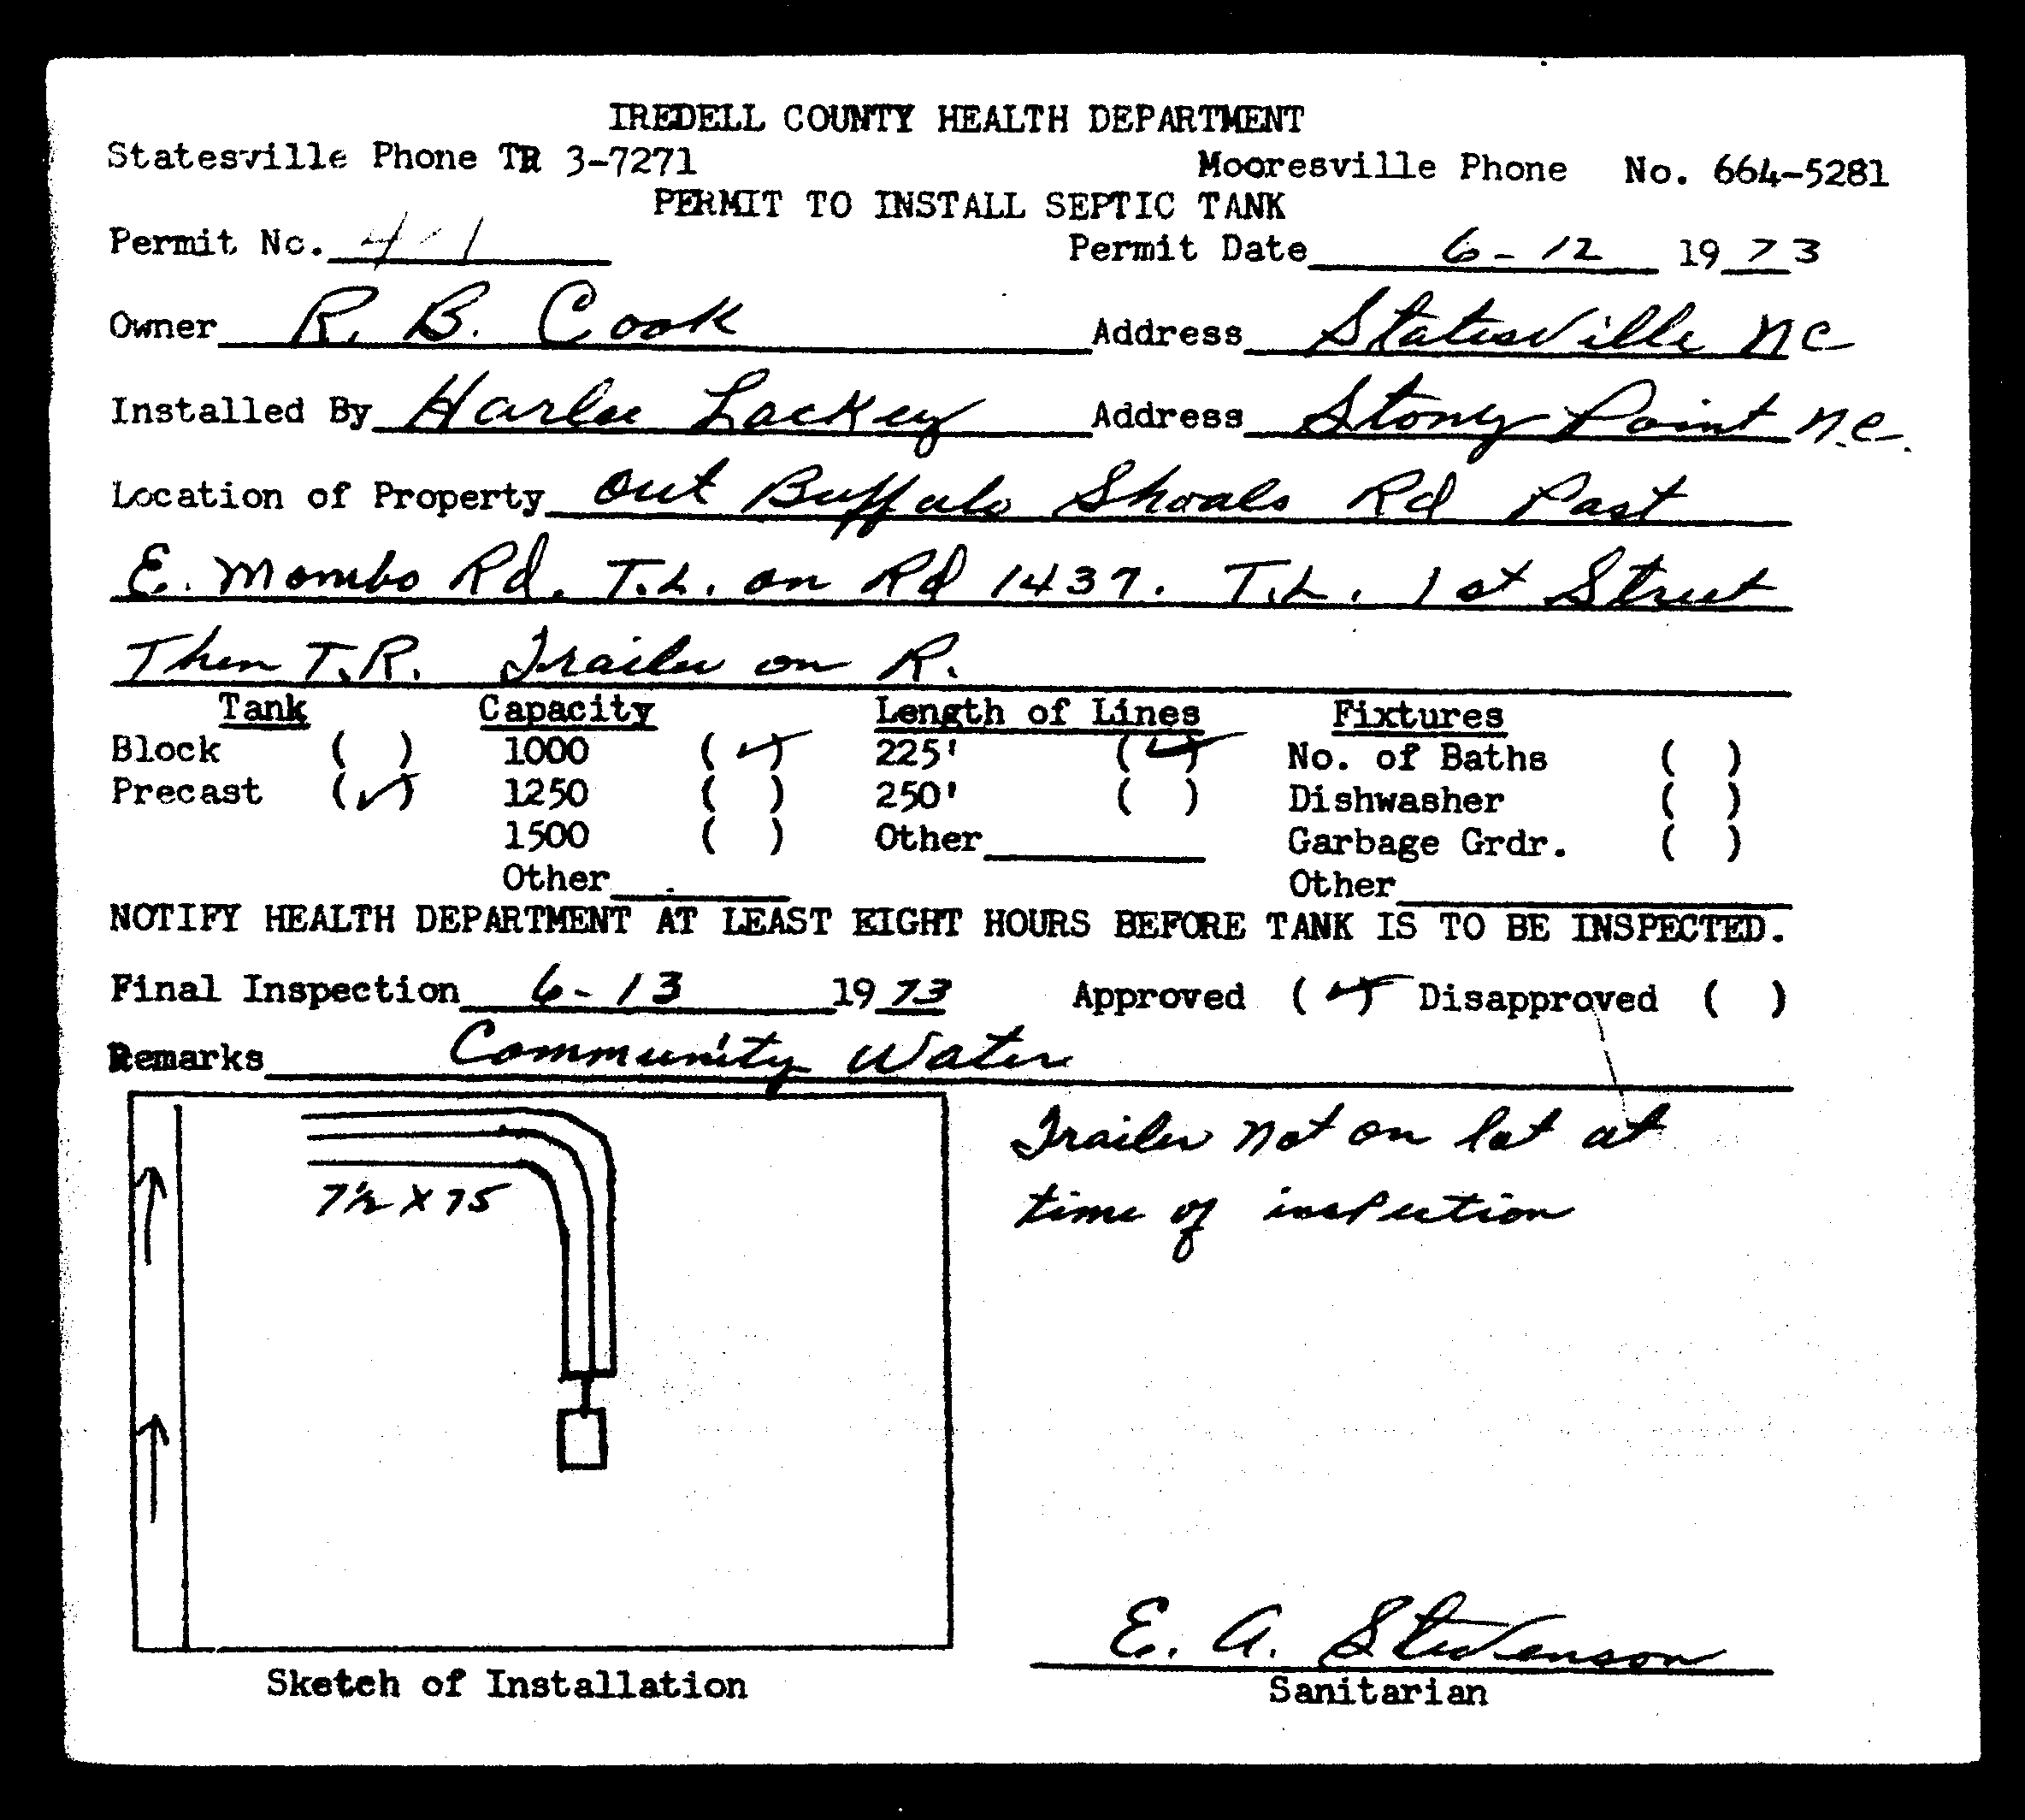 IREDELL COUNTY HEALTH DEPARTMENT
Statesville Phone TR 3-7271 Mooresville Phone No. 664-5281
PERMIT TO INSTALL SEPTIC TANK
Permit No. Permit Date 6-12 1973
Owner R. B. Cook Address Statesville NC
Installed By Harlee Lackey Address Stony Point N.C.
Location of Property Out Buffalo Shoals Rd Past
E. Mombo Rd. T.L. on Rd 1437. T.L. 1st Street
Then T.R. Trailer on R.
Tank Capacity Length of Lines Fixtures
Block ( ) 1000 (✓) 225' (✓) No. of Baths ( )
Precast (✓) 1250 ( ) 250' ( ) Dishwasher ( )
1500 ( ) Other Garbage Grdr. ( )
Other Other
NOTIFY HEALTH DEPARTMENT AT LEAST EIGHT HOURS BEFORE TANK IS TO BE INSPECTED.
Final Inspection 6-13 1973 Approved (✓) Disapproved ( )
Remarks Community Water
Trailer not on lot at
time of inspection
7½ X 75
E. A. Stevenson
Sketch of Installation Sanitarian